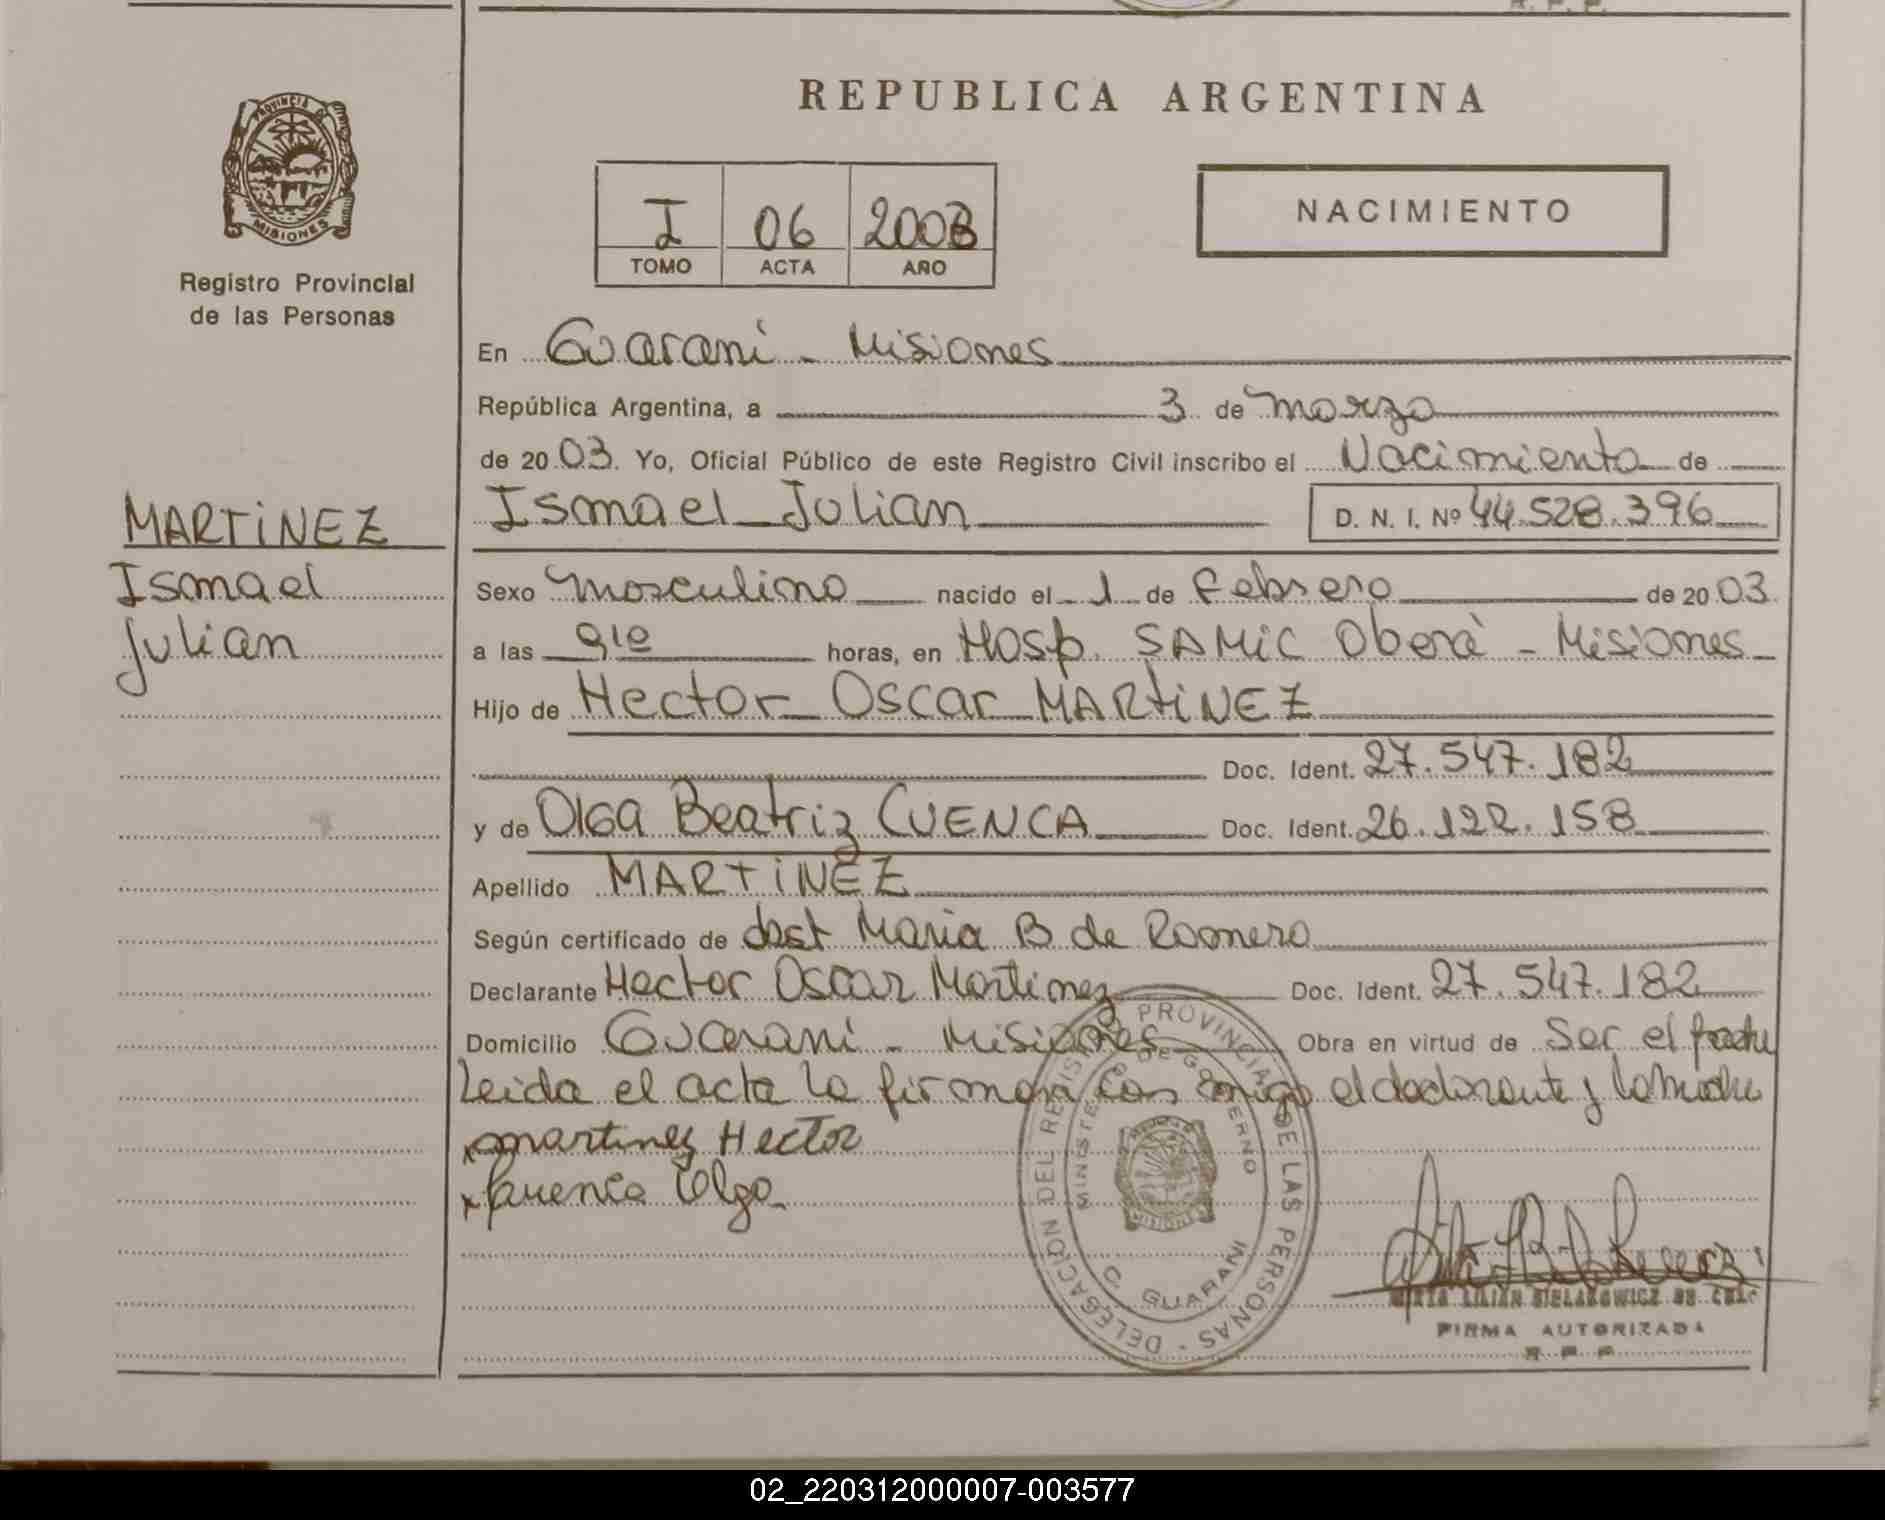 R. P. P.
REPUBLICA ARGENTINA
PROVINCIA DE
MISIONES
Registro Provincial
de las Personas
I 06 2003
TOMO ACTA AÑO
NACIMIENTO
En Guarani - Misiones
República Argentina, a 3 de marzo
de 2003. Yo, Oficial Público de este Registro Civil inscribo el Nacimiento de
MARTINEZ
Ismael
Julian
Ismael Julian D. N. I. Nº 44.528.396
Sexo masculino nacido el 1 de febrero de 2003.
a las 9 10 horas, en Hosp. SAMIC Oberà - Misiones
Hijo de Hector Oscar MARTINEZ
Doc. Ident. 27.547.182
y de Olga Beatriz CUENCA Doc. Ident. 26.122.158
Apellido MARTINEZ
Según certificado de obst Maria B de Romero
Declarante Hector Oscar Martinez Doc. Ident. 27.547.182
Domicilio Guarani - Misiones Obra en virtud de Ser el padre
Leida el acta la firman con migo el declarante y la madre
x martinez Hector
x Cuenca Olga
DELEGACION DEL REGISTRO PROVINCIAL DE LAS PERSONAS
MINISTERIO DE GOBIERNO
MISIONES
C. GUARANI
LILIAN BIELAKOWICZ DE
FIRMA AUTORIZADA
R P P
02_220312000007-003577